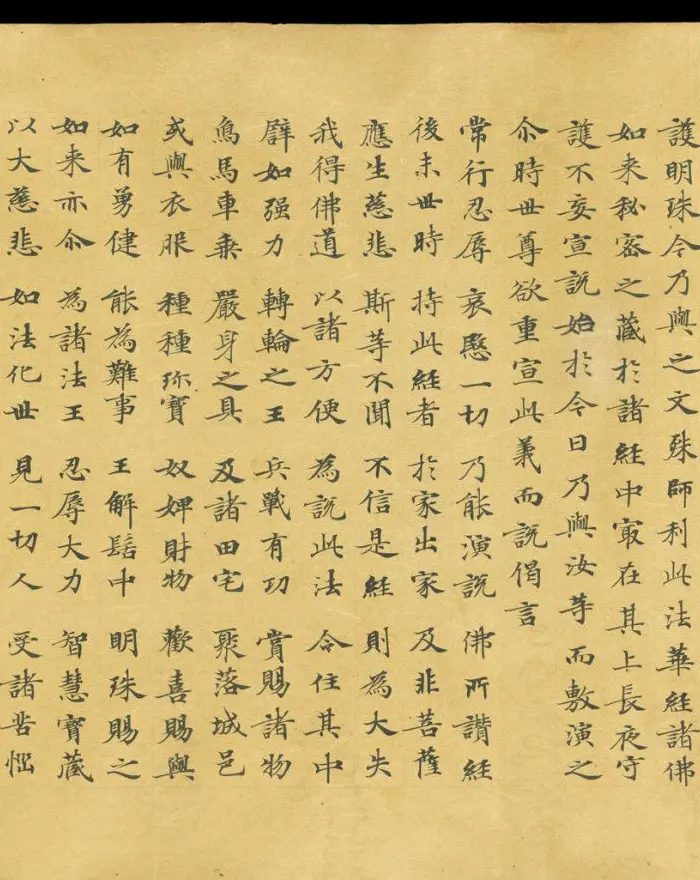 護明珠今乃與之文殊師利此法華經諸佛
如来秘密之蔵扵諸經中冣在其上長夜守
護不妄宣說始扵今日乃與汝等而敷演之
尒時世尊欲重宣此義而說偈言
常行忍辱 哀愍一切 乃能演說 佛所讚經
後末世時 持此經者 扵家出家 及非菩薩
應生慈悲 斯等不聞 不信是經 則為大失
我得佛道 以諸方便 為說此法 令住其中
譬如强力 轉輪之王 兵戰有功 賞賜諸物
鳥馬車乗 嚴身之具 及諸田宅 聚落城邑
或與衣服 種種珎寶 奴婢財物 歡喜賜與
如有勇健 能為難事 王解髻中 明珠賜之
如来亦尒 為諸法王 忍辱大力 智慧寶蔵
以大慈悲 如法化世 見一切人 受諸苦惱